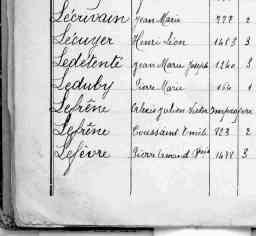 Lécrivain Jean Marie 777 2
Lécuyer Henri Léon 1453 3
Ledétenté Jean Marie Joseph 1240 3
Leduby Pierre Marie 164 1
Lefrêne Alexis Julien
Lefrêne Toussaint Emile 823 2
Lefèvre Pierre 1478 3